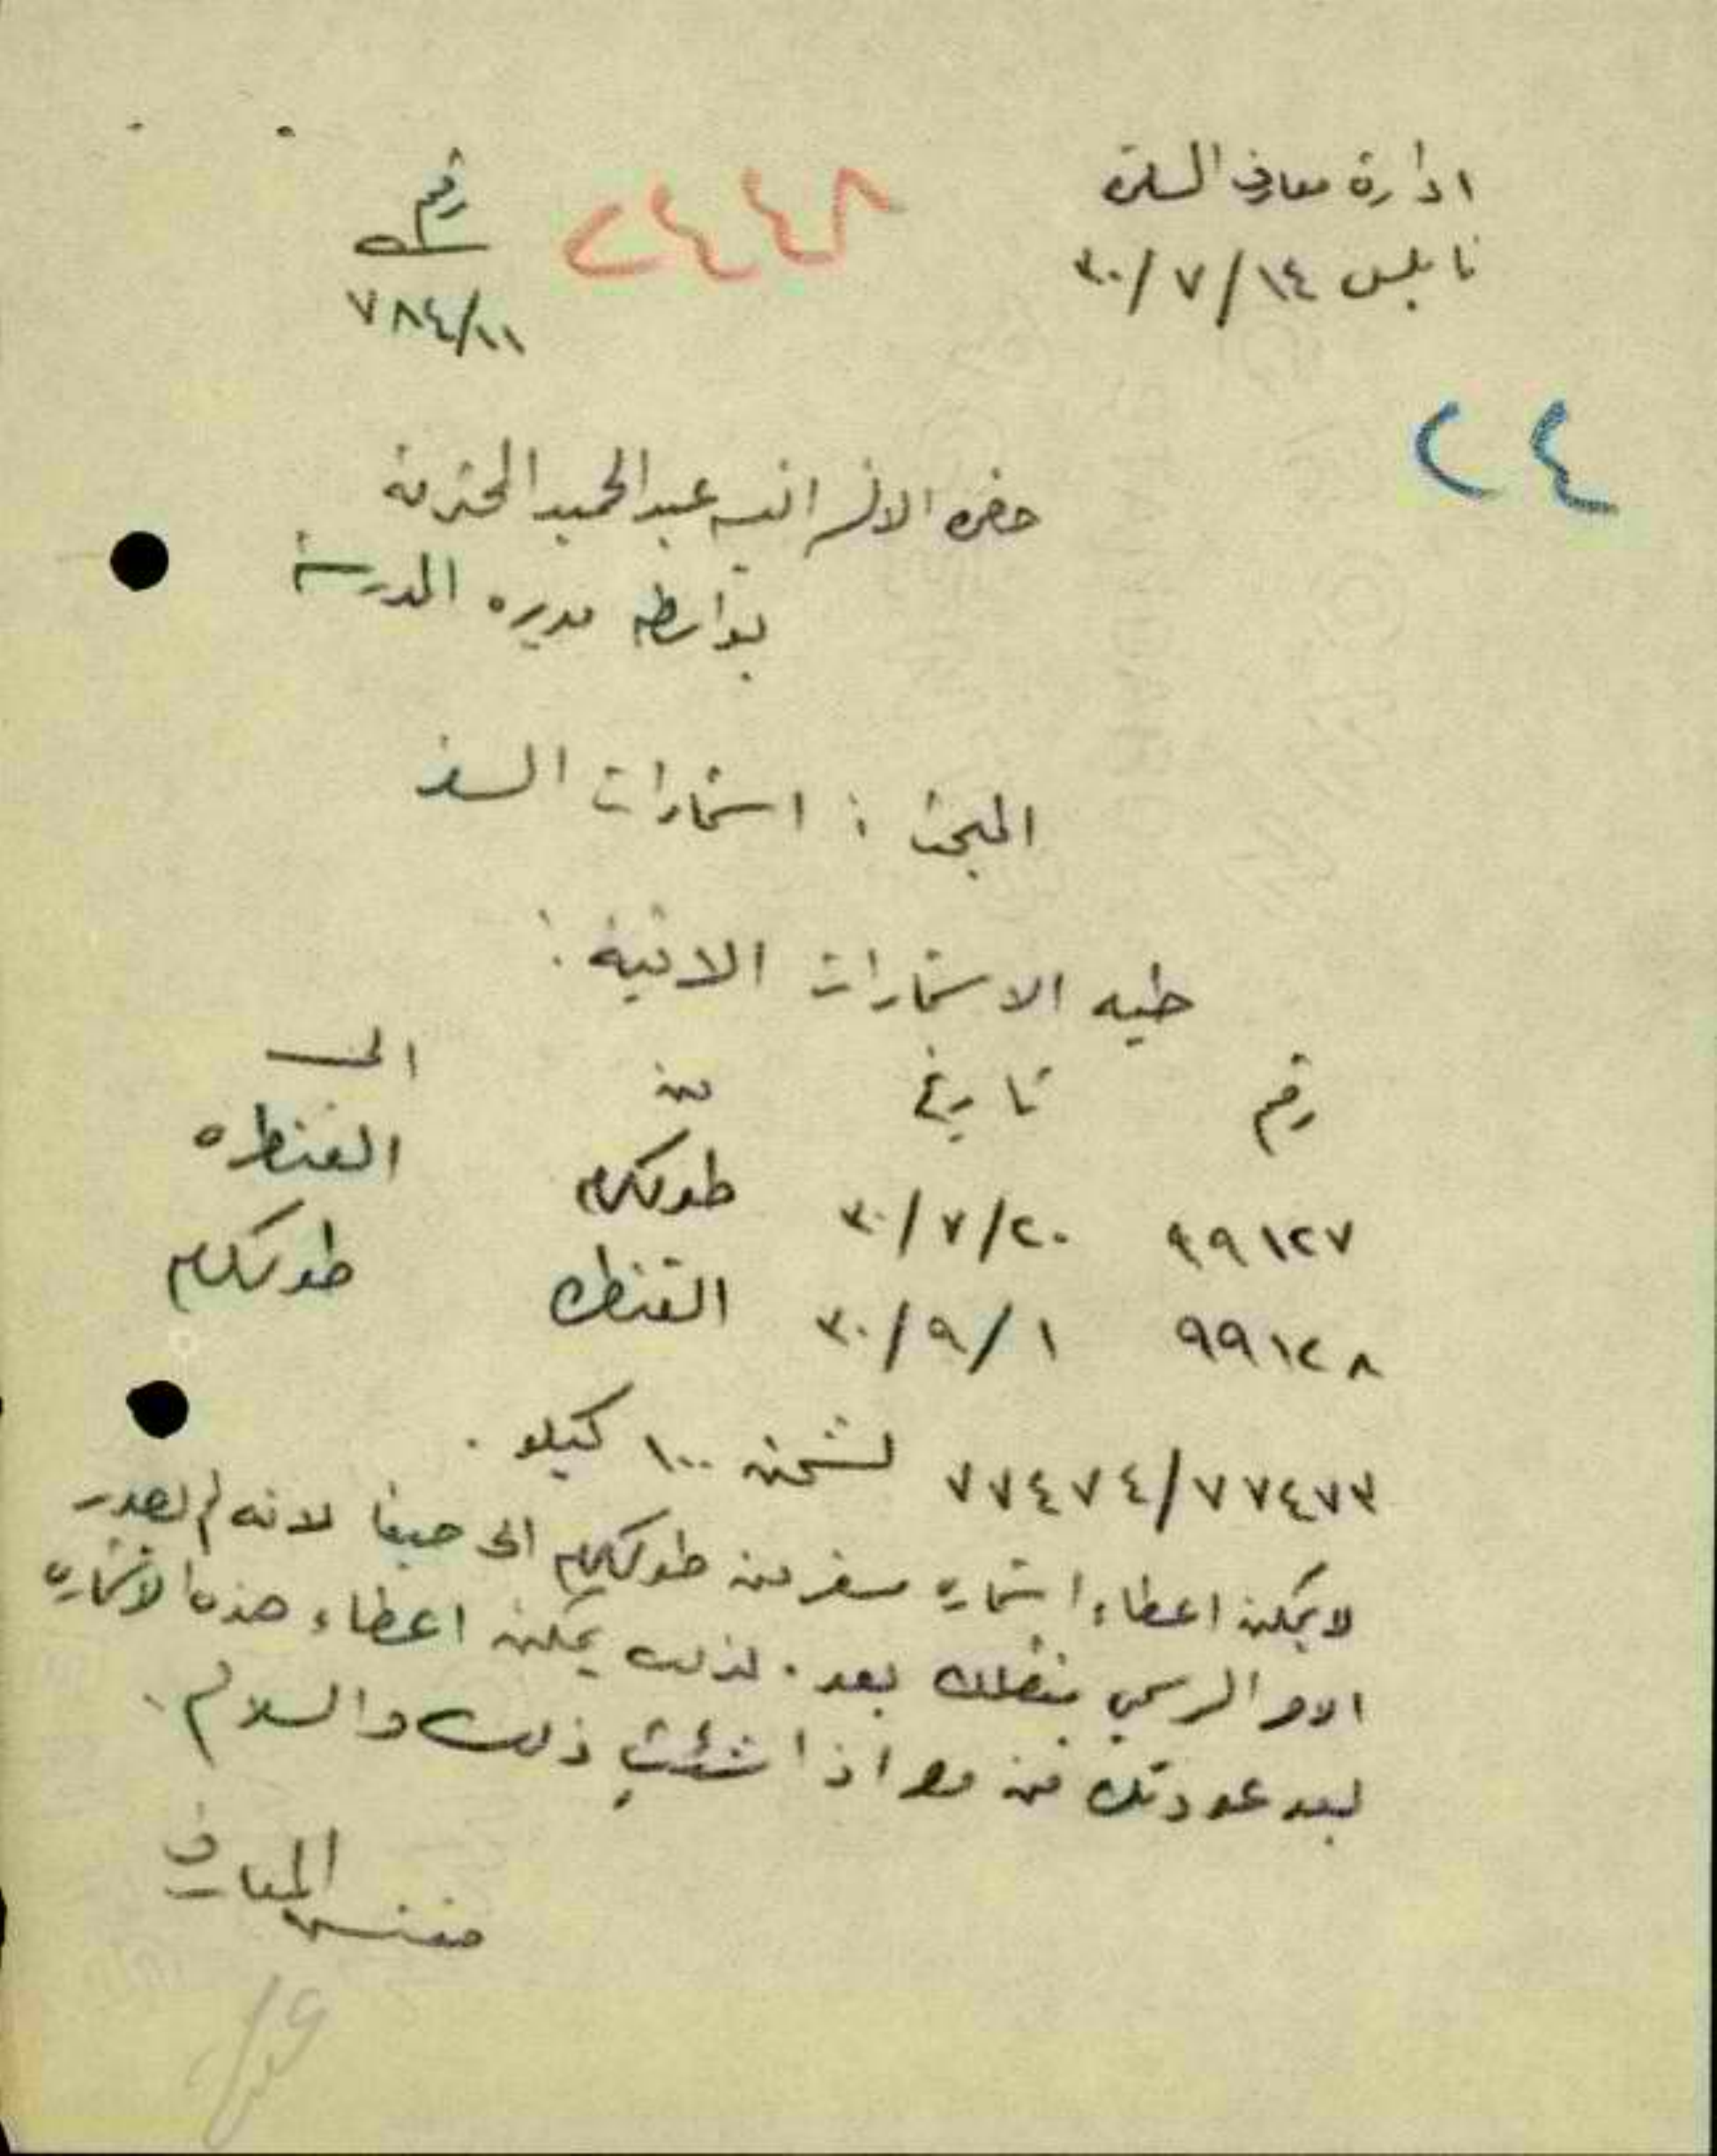 ادارة معارف السامرة
نابلس ١٤/٧/٣٠
رقم
٧٨٤/١١
٨٤٤٢
٢٤
حضرة الانسة انيسه عبدالحميد المحترمة
بواسطة مديره المدرسة
المبحث : استمارات السفر
طيه الاستمارات الاتية :
رقم تاريخ من الى
٩٩١٢٧ ٢٠/٧/٣٠ طولكرم القنطره
٩٩١٢٨ ١/٩/٣٠ القنطرة طولكرم
٧٧٤٧٤/٧٧٤٧٣ لشحن ١٠٠ كيلو .
لا يمكن اعطاء استماره سفر من طولكرم الى حيفا لانه لم يصدر
الامر الرسمي بنقلك بعد . لذلك يمكن اعطاء هذه الاستماره
بعد عودتك من مصر اذا شئتِ ذلك والسلام .
مفتش المعارف